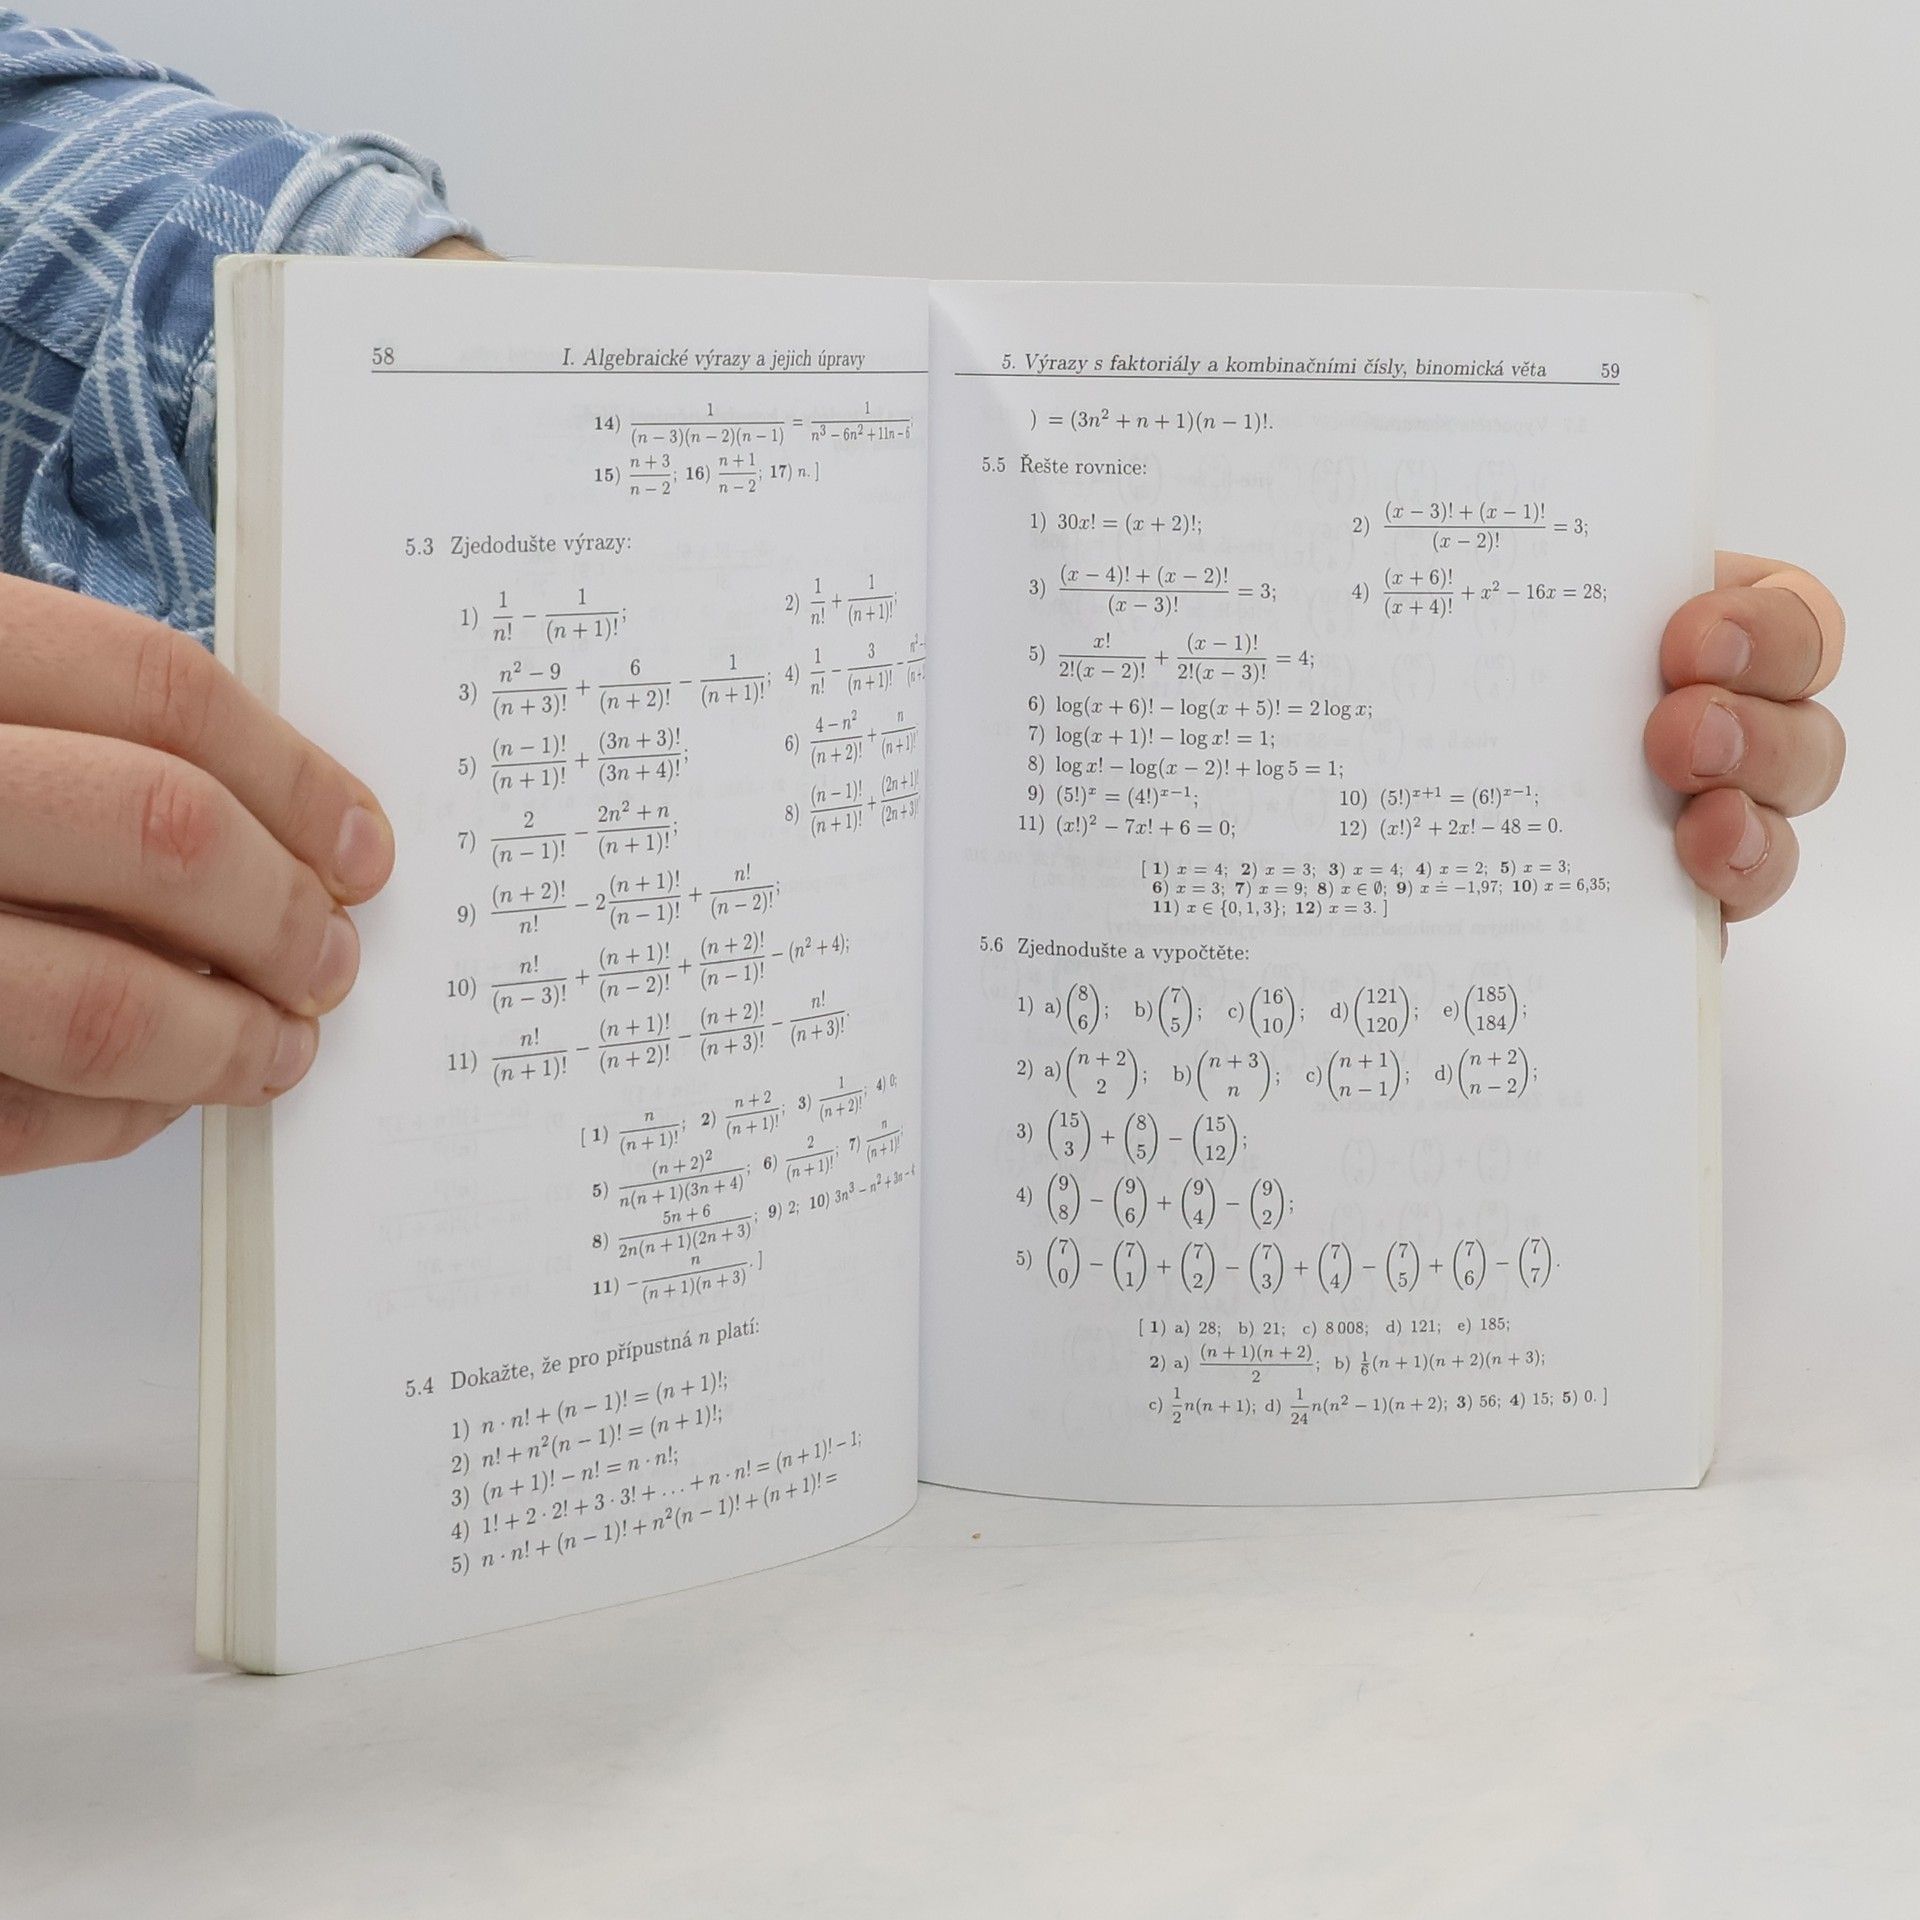 58 I. Algebraické výrazy a jejich úpravy
14) 1/((n − 3)(n − 2)(n − 1)) = 1/(n³ − 6n² + 11n − 6);
15) (n + 3)/(n − 2); 16) (n + 1)/(n − 2); 17) n. ]
5.3 Zjedodušte výrazy:
1) 1/n! − 1/(n + 1)!; 2) 1/n! + 1/(n + 1)!;
3) (n² − 9)/(n + 3)! + 6/(n + 2)! − 1/(n + 1)!; 4) 1/n! − 3/(n + 1)! −
5) (n − 1)!/(n + 1)! + (3n + 3)!/(3n + 4)!; 6) (4 − n²)/(n + 2)! + n/(n + 1)!
7) 2/(n − 1)! − (2n² + n)/(n + 1)!; 8) (n − 1)!/(n + 1)! + (2n + 1)!/(2n + 3)!
9) (n + 2)!/n! − 2(n + 1)!/(n − 1)! + n!/(n − 2)!;
10) n!/(n − 3)! + (n + 1)!/(n − 2)! + (n + 2)!/(n − 1)! − (n² + 4);
11) n!/(n + 1)! − (n + 1)!/(n + 2)! − (n + 2)!/(n + 3)! − n!/(n + 3)!.
[ 1) n/(n + 1)!; 2) (n + 2)/(n + 1)!; 3) 1/(n + 2)!; 4) 0;
5) (n + 2)²/(n(n + 1)(3n + 4)); 6) 2/(n + 1)!; 7) n/(n + 1)!;
8) (5n + 6)/(2n(n + 1)(2n + 3)); 9) 2; 10) 3n³ − n² + 3n − 4
11) − n/((n + 1)(n + 3)). ]
5.4 Dokažte, že pro přípustná n platí:
1) n · n! + (n − 1)! = (n + 1)!;
2) n! + n²(n − 1)! = (n + 1)!;
3) (n + 1)! − n! = n · n!;
4) 1! + 2 · 2! + 3 · 3! + … + n · n! = (n + 1)! − 1;
5) n · n! + (n − 1)! + n²(n − 1)! + (n + 1)! =
5. Výrazy s faktoriály a kombinačními čísly, binomická věta 59
) = (3n² + n + 1)(n − 1)!.
5.5 Řešte rovnice:
1) 30x! = (x + 2)!; 2) ((x − 3)! + (x − 1)!)/(x − 2)! = 3;
3) ((x − 4)! + (x − 2)!)/(x − 3)! = 3; 4) (x + 6)!/(x + 4)! + x² − 16x = 28;
5) x!/(2!(x − 2)!) + (x − 1)!/(2!(x − 3)!) = 4;
6) log(x + 6)! − log(x + 5)! = 2 log x;
7) log(x + 1)! − log x! = 1;
8) log x! − log(x − 2)! + log 5 = 1;
9) (5!)ˣ = (4!)ˣ⁻¹; 10) (5!)ˣ⁺¹ = (6!)ˣ⁻¹;
11) (x!)² − 7x! + 6 = 0; 12) (x!)² + 2x! − 48 = 0.
[ 1) x = 4; 2) x = 3; 3) x = 4; 4) x = 2; 5) x = 3;
6) x = 3; 7) x = 9; 8) x ∈ ∅; 9) x ≐ −1,97; 10) x = 6,35;
11) x ∈ {0, 1, 3}; 12) x = 3. ]
5.6 Zjednodušte a vypočtěte:
1) a) (8 6); b) (7 5); c) (16 10); d) (121 120); e) (185 184);
2) a) (n + 2 2); b) (n + 3 n); c) (n + 1 n − 1); d) (n + 2 n − 2);
3) (15 3) + (8 5) − (15 12);
4) (9 8) − (9 6) + (9 4) − (9 2);
5) (7 0) − (7 1) + (7 2) − (7 3) + (7 4) − (7 5) + (7 6) − (7 7).
[ 1) a) 28; b) 21; c) 8 008; d) 121; e) 185;
2) a) (n + 1)(n + 2)/2; b) 1/6(n + 1)(n + 2)(n + 3);
c) 1/2 n(n + 1); d) 1/24 n(n² − 1)(n + 2); 3) 56; 4) 15; 5) 0. ]